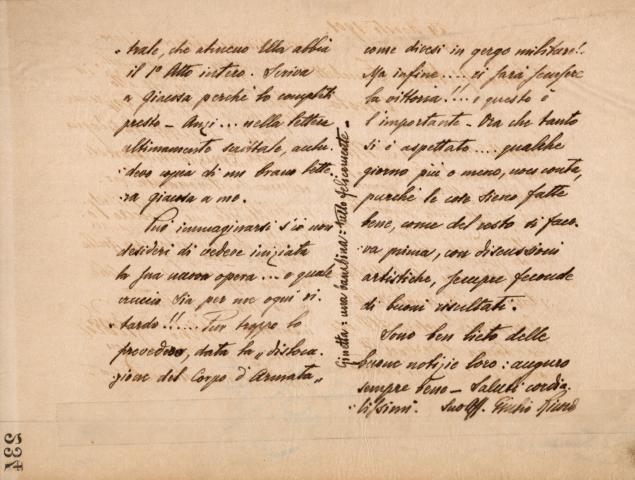 trale, che almeno Ella abbia
il 1º Atto intero. Scriva
a Giacosa perchè lo completi
presto - Anzi... nella lettera
ultimamente scrittale, acclu-
devo copia di un brano lette-
ra giacosa a me.
Può immaginarsi s'io non
desideri di vedere iniziata
la sua nuova opera... e quale
cruccio sia per me ogni ri-
tardo!!.... Pur troppo lo
prevedevo, data la "disloca-
zione del Corpo d'Armata"
come dicesi in gergo militare!
Ma infine.... vi sarà sempre
la vittoria!!! e questo è
l'importante - Ora che tanto
si è aspettato.... qualche
giorno più o meno, non conta,
purchè le cose sieno fatte
bene, come del resto si face-
va prima, con discussioni
artistiche, sempre feconde
di buoni risultati.
Sono ben lieto delle
buone notizie loro: auguro
sempre bene - Saluti cordia-
lissimi. Suo aff. Giulio Ricordi
Ginetta: una bambina: tutto felicemente -
234